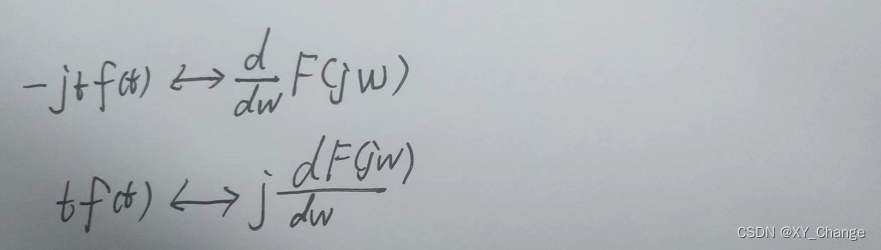 -jtf(t) ↔ d/dw F(jw)
tf(t) ↔ j dF(jw)/dw
CSDN @XY_Change